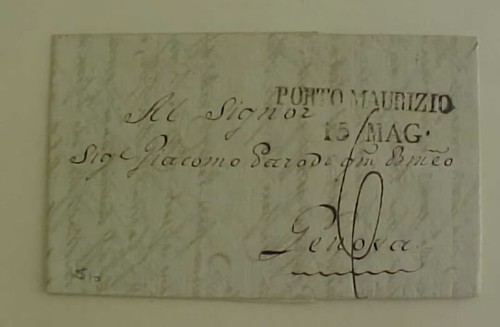 PORTO MAURIZIO
15 MAG.
Al Signor
Sig.e Giacomo Parodi qm
Genova
6